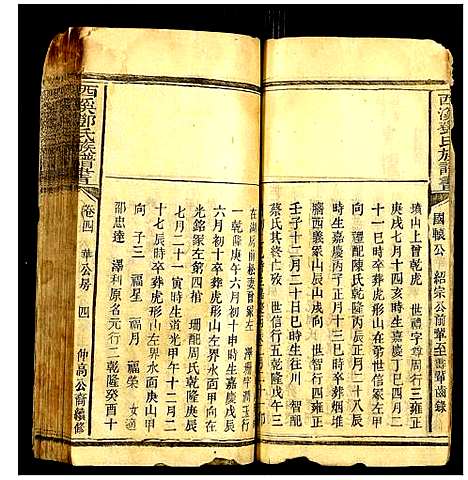 西溪鄧氏族譜書
國轅公 紹宗公前輩至善輩齒錄
墳山上曾乾虎 世禮字尊周行三雍正
庚戌七月十四亥時生嘉慶丁巳四月二
十一巳時卒葬虎形山左第世信泉右向
理配陳氏乾隆 月二十八辰
時生嘉慶丙子正月十三巳時卒葬烟堆
腦西義冢山辰山戌向 世智行四雍正
壬子十二月 日 時生往川 智配
蔡氏其終仁歿 世信行六乾隆戊午三
在湖房前松妻曾家左 澤珊字潤玉行
一乾隆庚午六月初十申時生嘉慶戊辰
六月初十卒葬虎形山左界水面甲向
光銘冢左第四棺 珊配周氏乾隆庚辰
七月二十一寅時生道光甲午十二月二
十七辰時卒葬虎形山左界水面庚山甲
向 子三 福星 福月 福榮 女適
邵忠達 澤利原名元行二乾隆癸酉十
卷四 華公房 四 仲高公裔續修
西溪鄧氏族譜書